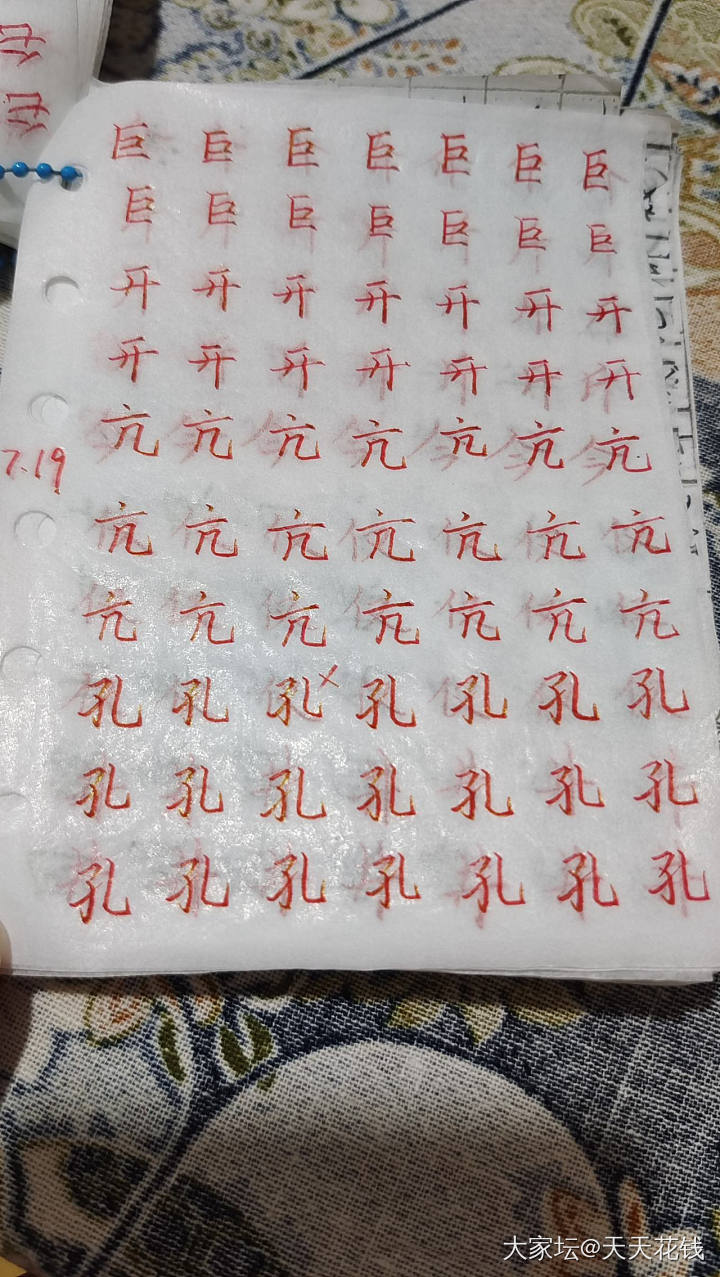 巨 巨 巨 巨 巨 巨 巨
巨 巨 巨 巨 巨 巨 巨
开 开 开 开 开 开 开
开 开 开 开 开 开 开
亢 亢 亢 亢 亢 亢 亢
7.19
亢 亢 亢 亢 亢 亢 亢
亢 亢 亢 亢 亢 亢 亢
孔 孔 孔× 孔 孔 孔 孔
孔 孔 孔 孔 孔 孔 孔
孔 孔 孔 孔 孔 孔 孔
大家坛@天天花钱